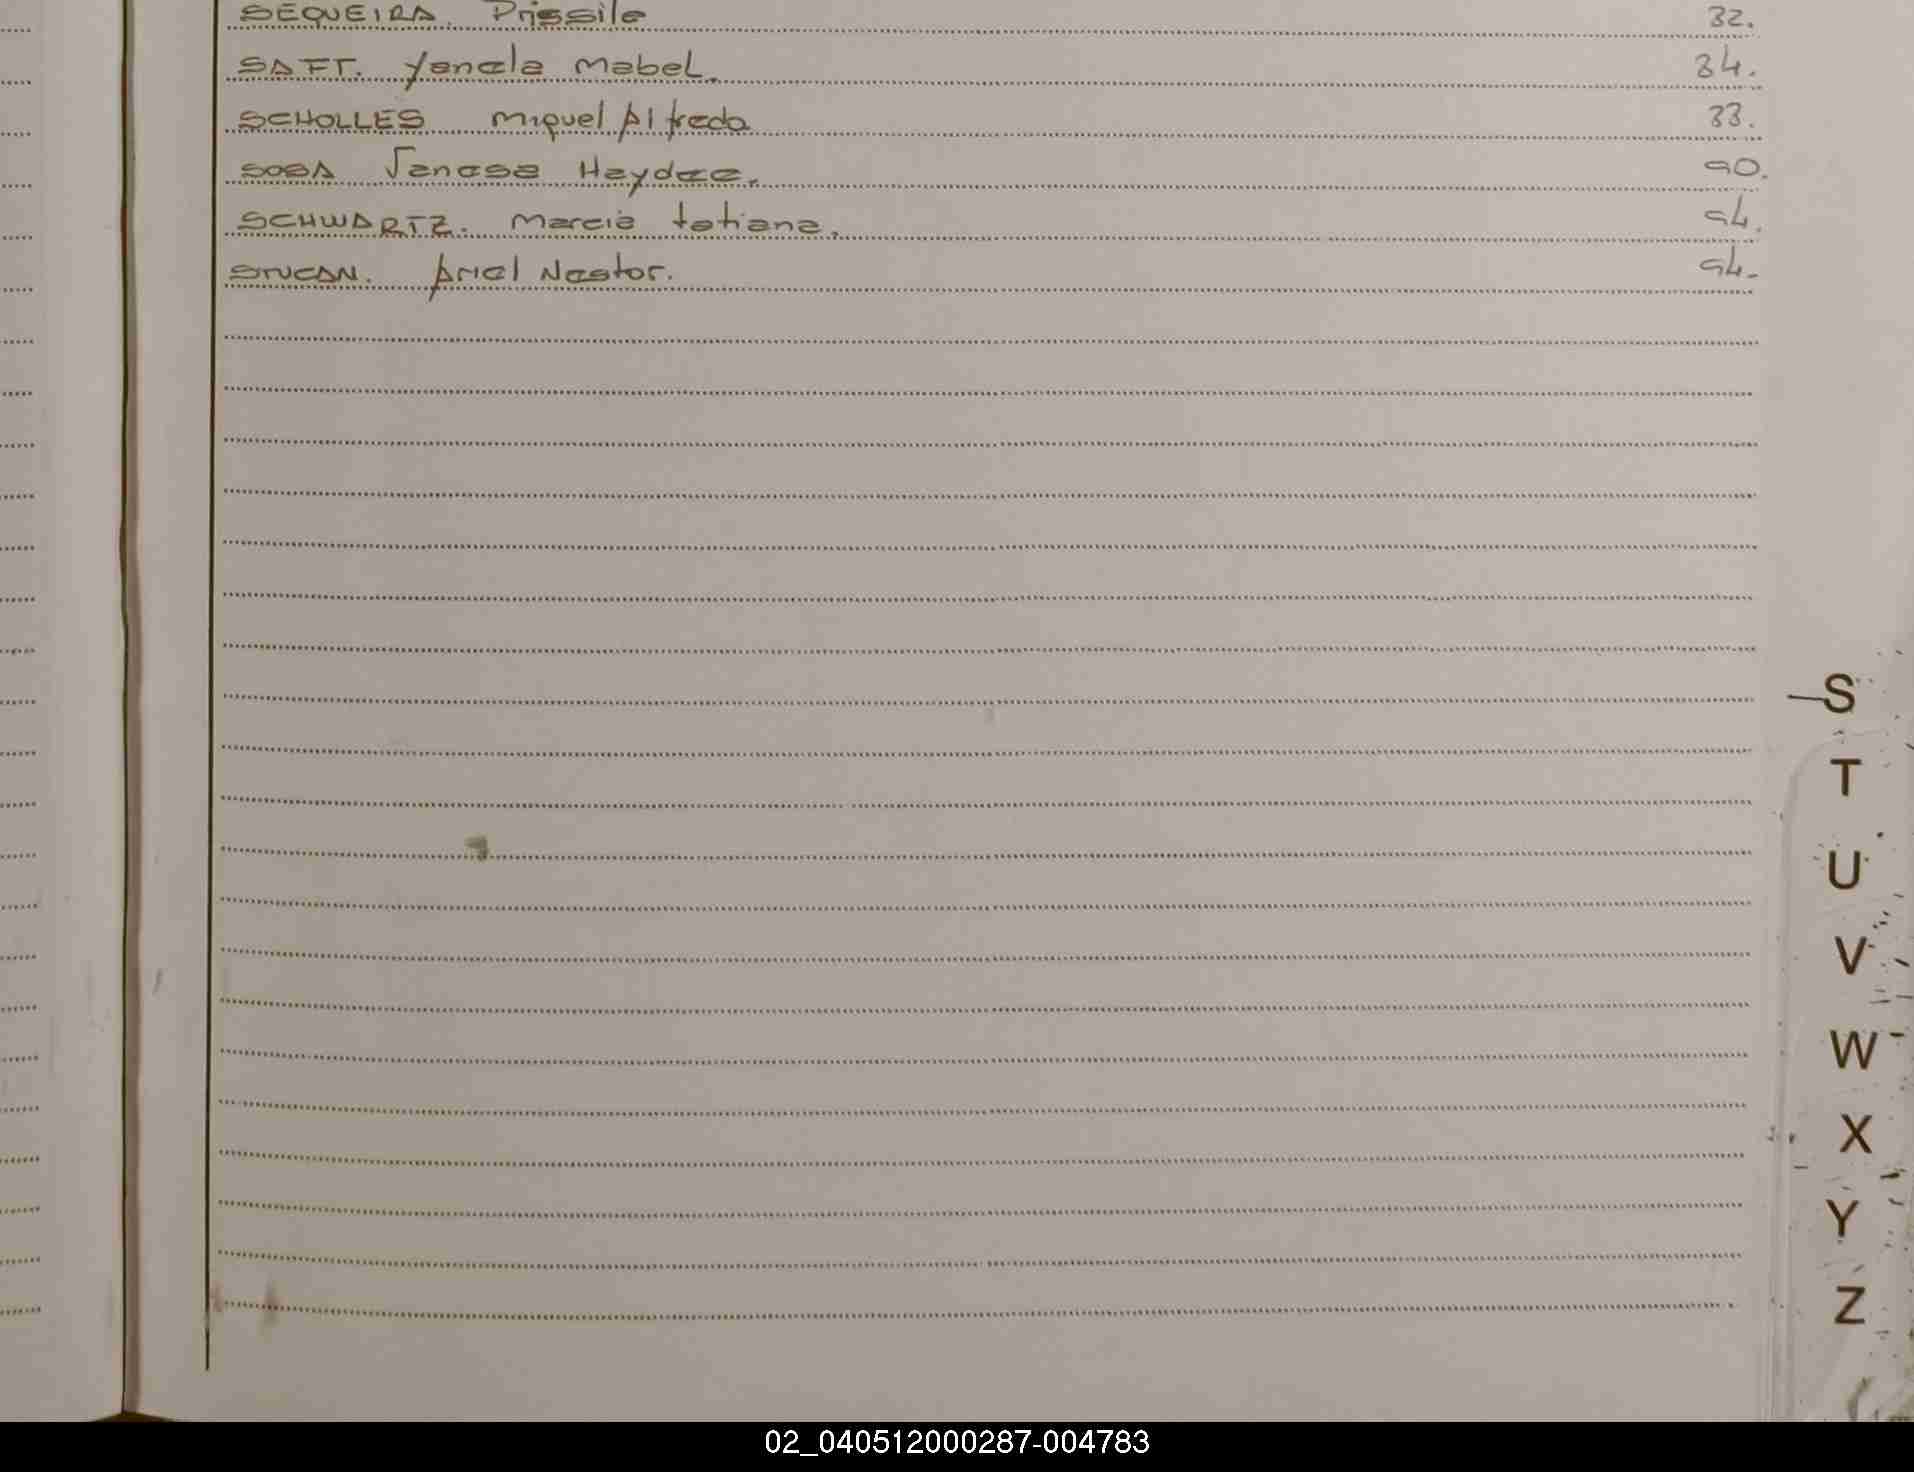 SEQUEIRA. Prissila 32.
SAFT. Yanela Mabel. 34.
SCHOLLES Miguel Alfredo 33.
SOSA Vanesa Haydee. 90.
SCHWARTZ. Marcia tatiana. 94.
Ariel Nestor. 94-
S
T
U
V
W
X
Y
Z
02_040512000287-004783